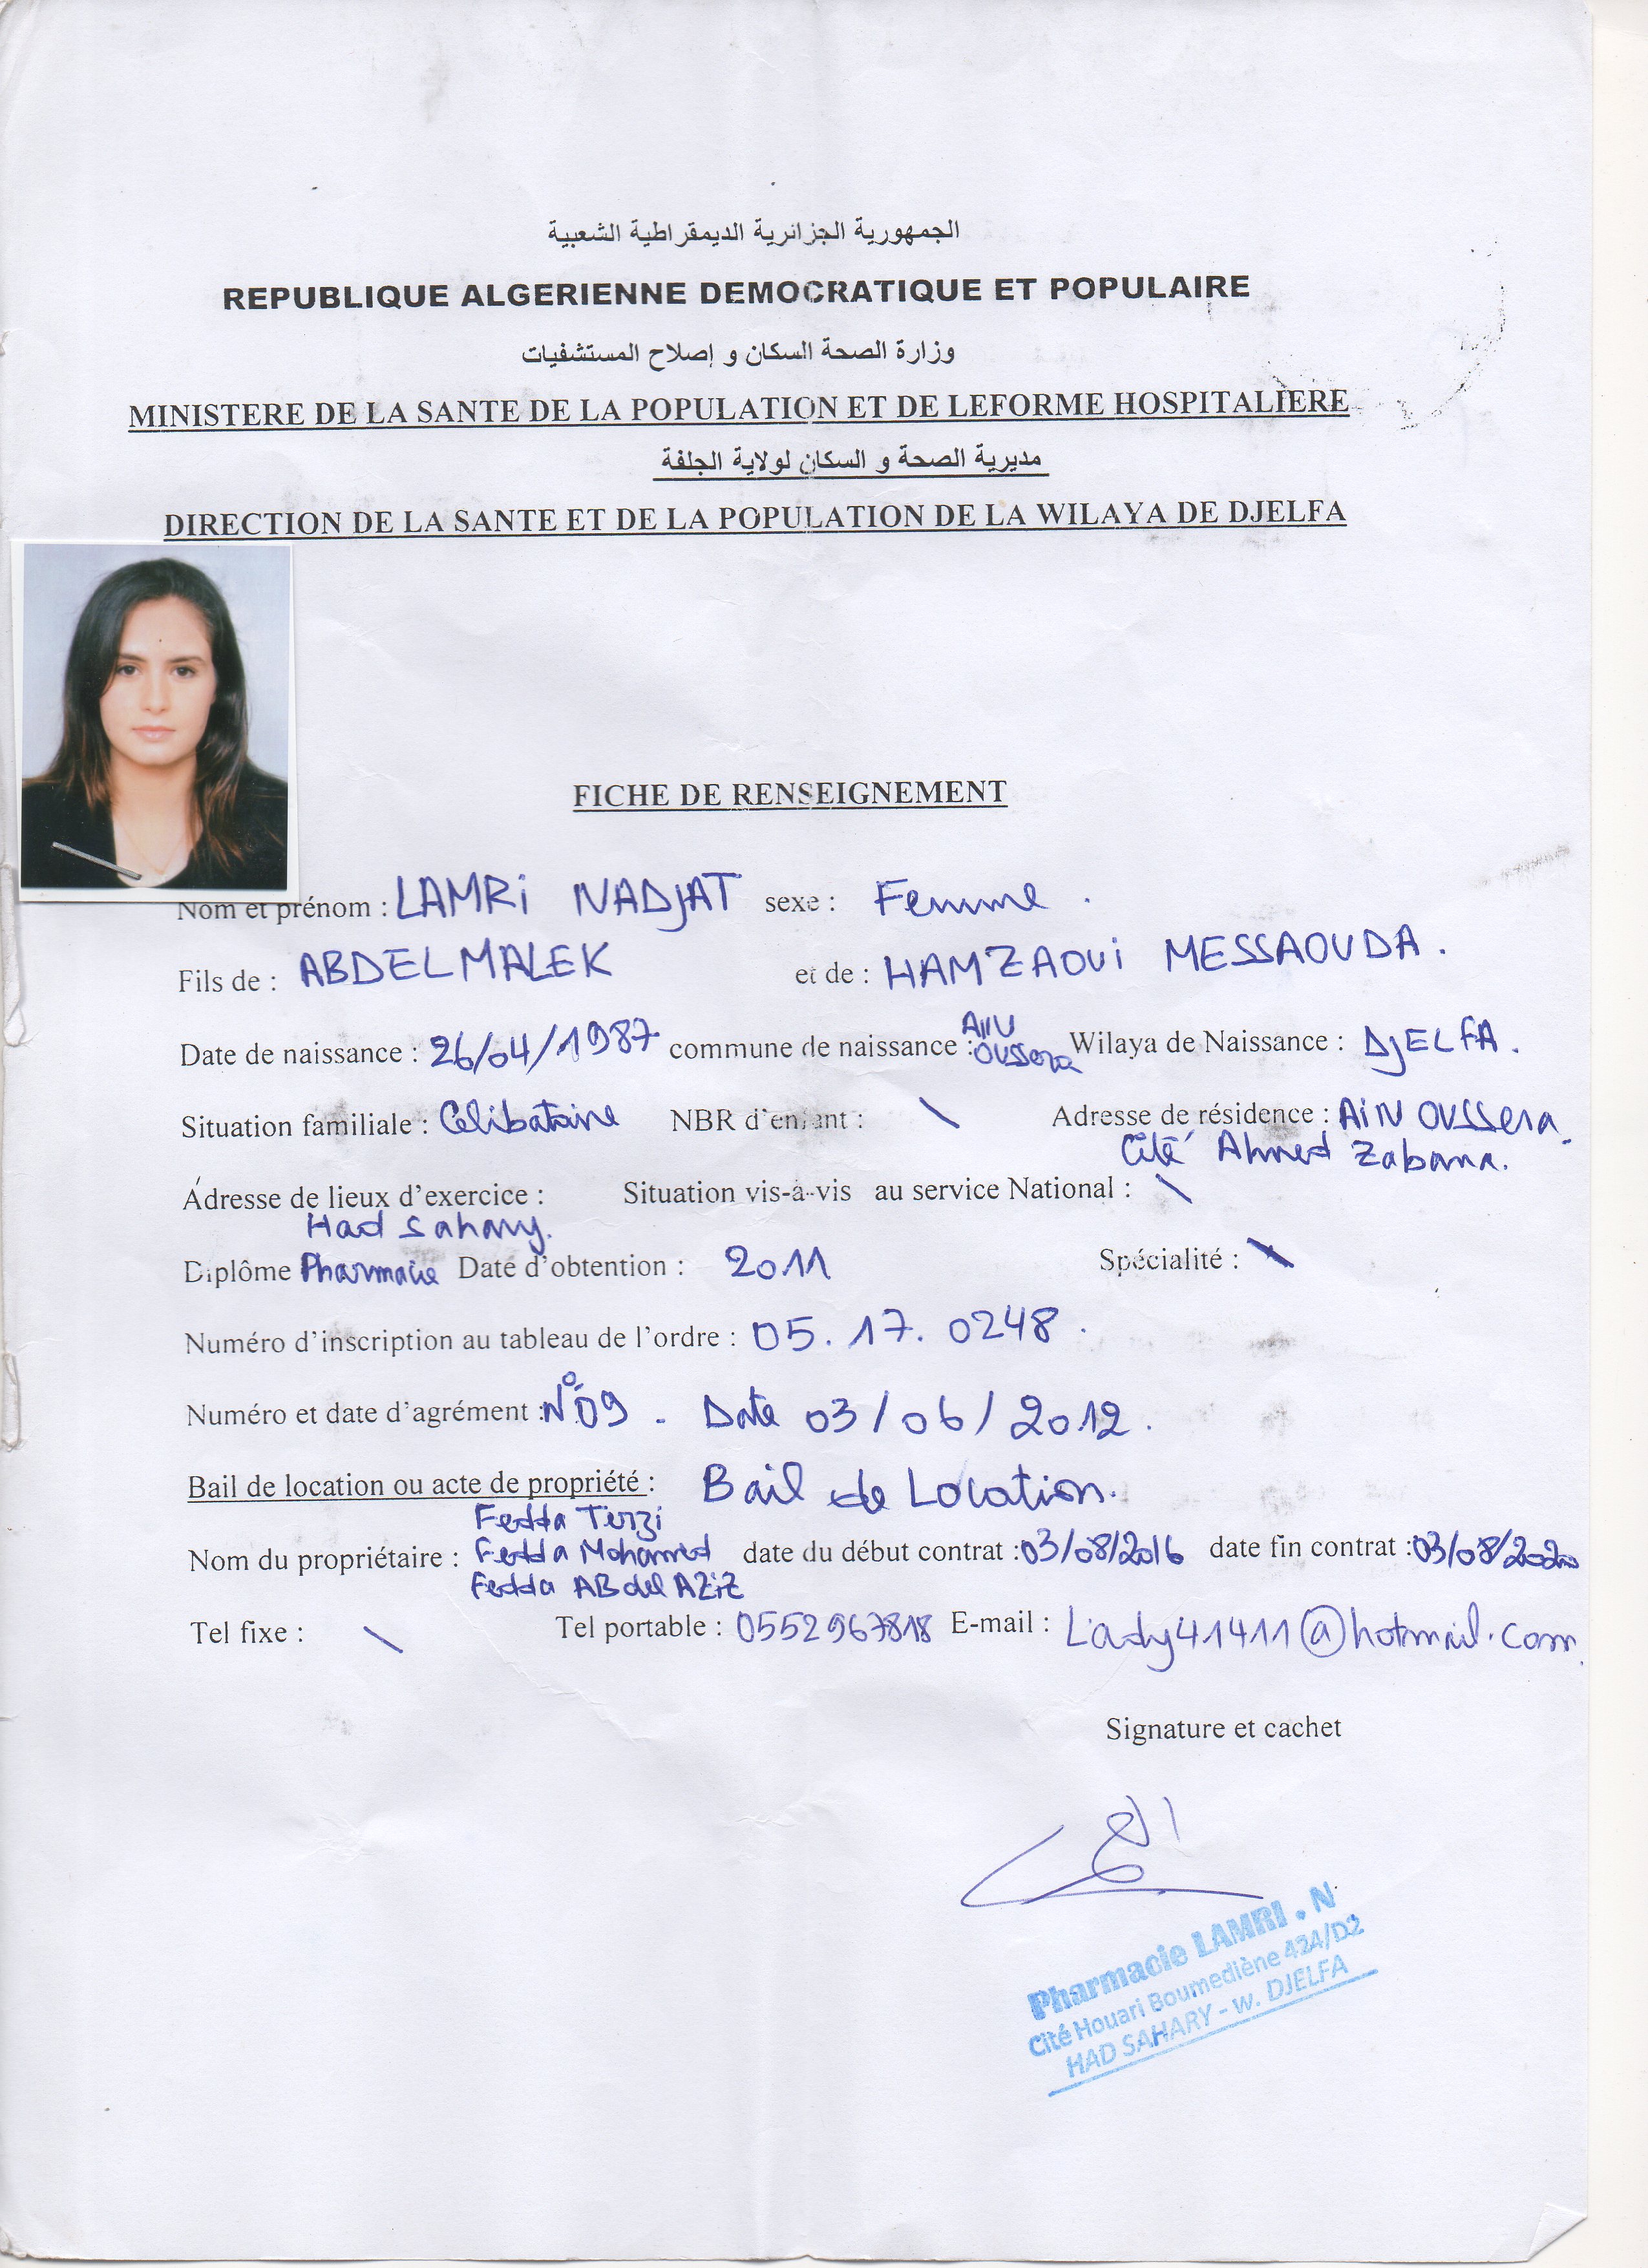 الجمهورية الجزائرية الديمقراطية الشعبية
REPUBLIQUE ALGERIENNE DEMOCRATIQUE ET POPULAIRE
وزارة الصحة السكان و إصلاح المستشفيات
MINISTERE DE LA SANTE DE LA POPULATION ET DE LEFORME HOSPITALIERE
مديرية الصحة و السكان لولاية الجلفة
DIRECTION DE LA SANTE ET DE LA POPULATION DE LA WILAYA DE DJELFA
FICHE DE RENSEIGNEMENT
Nom et prénom : LAMRI NADJAT sexe : Femme .
Fils de : ABDELMALEK et de : HAMZAOUI MESSAOUDA .
Date de naissance : 26/04/1987 commune de naissance : AIN OUSSERA Wilaya de Naissance : DJELFA .
Situation familiale : Celibataire NBR d'enfant : \ Adresse de résidence : AIN OUSSera .
Cité Ahmed Zabana.
Adresse de lieux d'exercice : Situation vis-à-vis au service National : \
Had Sahary.
Diplôme Pharmacie Date d'obtention : 2011 Spécialité : \
Numéro d'inscription au tableau de l'ordre : 05. 17. 0248 .
Numéro et date d'agrément : N° 09 . Date 03/06/2012 .
Bail de location ou acte de propriété : Bail de Location.
Fedda Terzi
Nom du propriétaire : Fedda Mohamed date du début contrat : 03/08/2016 date fin contrat : 03/08/2020
Fedda ABdel AZiZ
Tel fixe : \ Tel portable : 0552967818 E-mail : Lady41411@hotmail.com
Signature et cachet
Pharmacie LAMRI . N
Cité Houari Boumediène 424/D2
HAD SAHARY - w. DJELFA